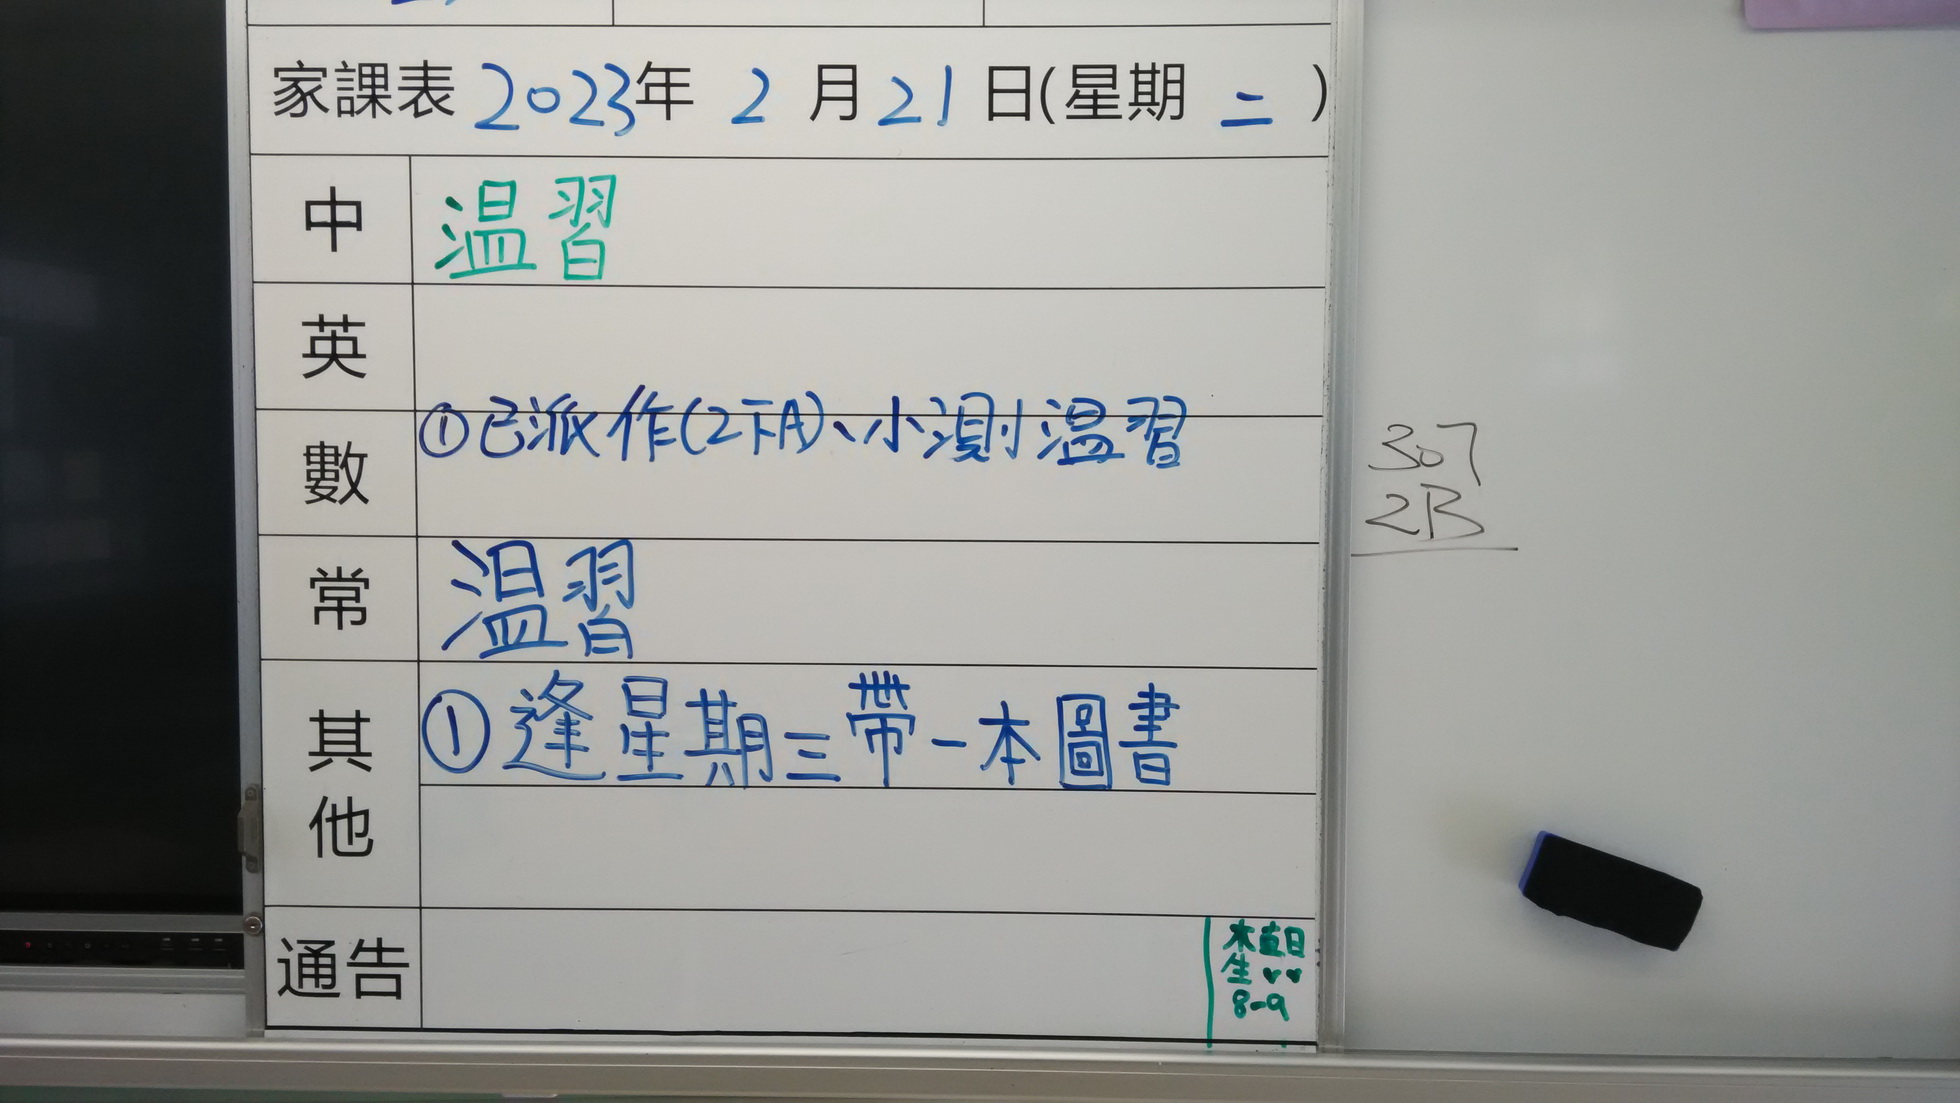 家課表 2023年 2月21日(星期二)
中 温習
英
數 ①已派作(2下A)、小測温習
常 温習
其他 ①逢星期三帶一本圖書
通告
直日
生
8-9
307
2B